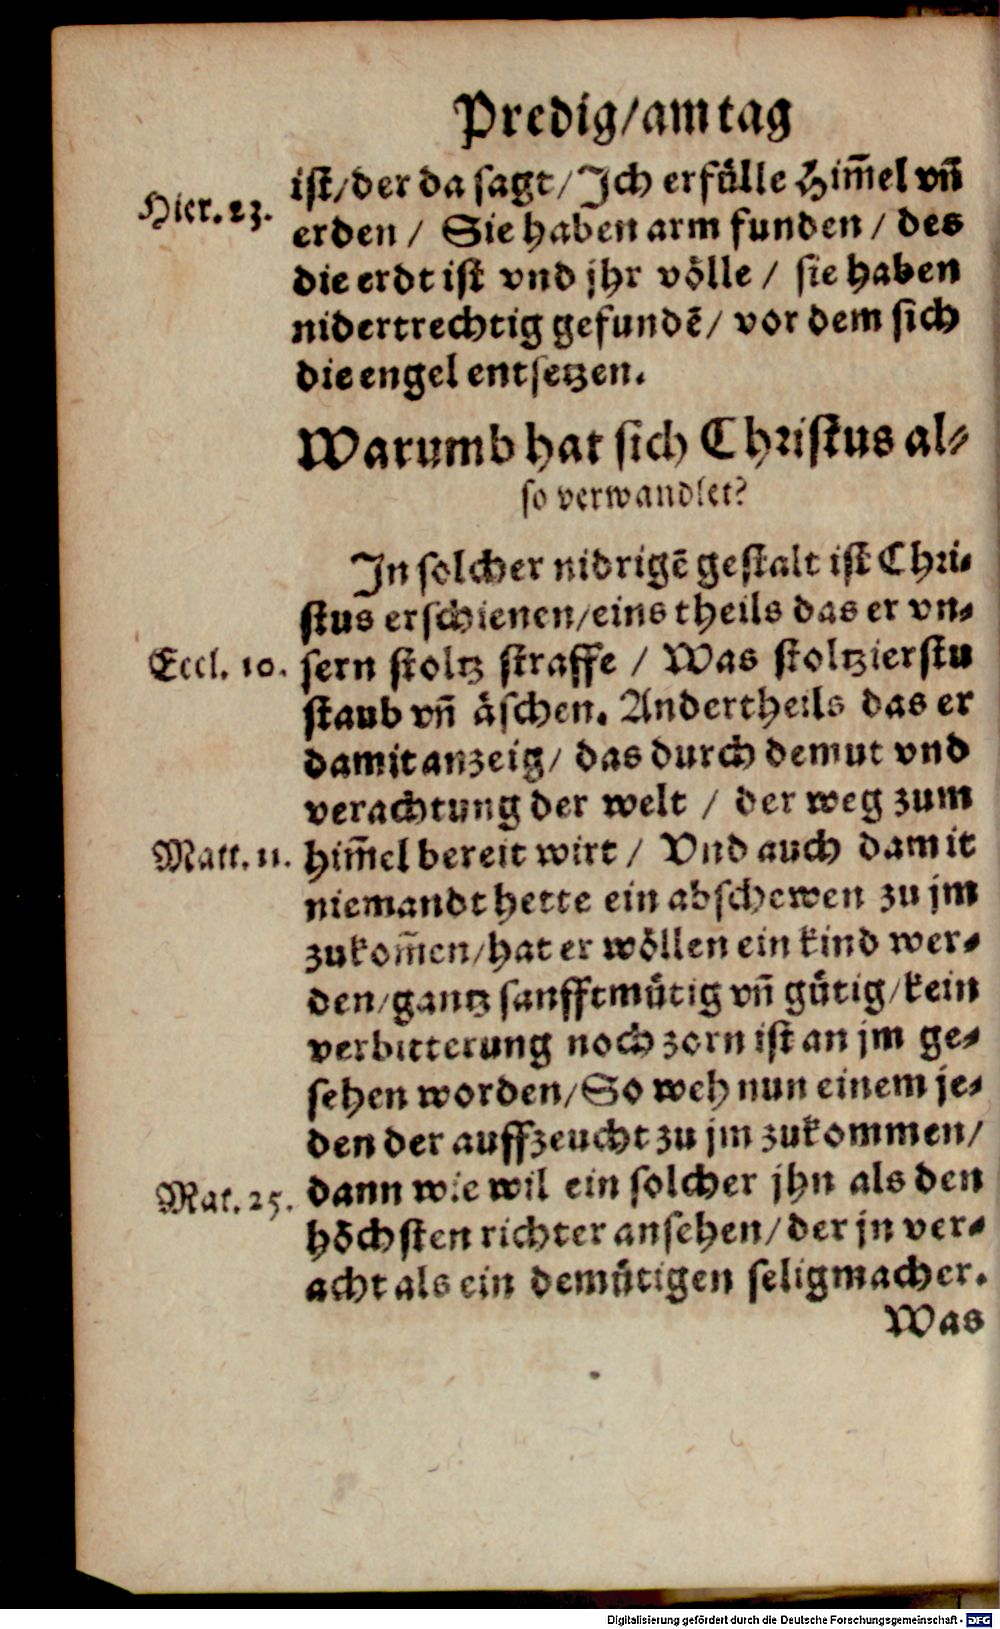 Predig/am tag
ist/der da sagt/Jch erfülle Him̄el vn̄
Hier. 23.
erden / Sie haben arm funden / des
die erdt ist vnd jhr völle / sie haben
nidertrechtig gefundē/ vor dem sich
die engel entsetzen.
Warumb hat sich Christus al-
so verwandlet?
Jn solcher nidrigē gestalt ist Chri-
stus erschienen/eins theils das er vn-
Eccl. 10.
sern stoltz straffe / Was stoltzierstu
staub vn̄ äschen. Andertheils das er
damit anzeig/ das durch demut vnd
verachtung der welt / der weg zum
Matt. 11.
him̄el bereit wirt / Vnd auch damit
niemandt hette ein abschewen zu jm
zukom̄en/hat er wöllen ein kind wer-
den/gantz sanfftmütig vn̄ gütig/kein
verbitterung noch zorn ist an jm ge-
sehen worden/So weh nun einem je-
den der auffzeucht zu jm zukommen/
Mat. 25.
dann wie wil ein solcher jhn als den
höchsten richter ansehen/der jn ver-
acht als ein demütigen seligmacher.
Was
Digitalisierung gefördert durch die Deutsche Forschungsgemeinschaft - DFG